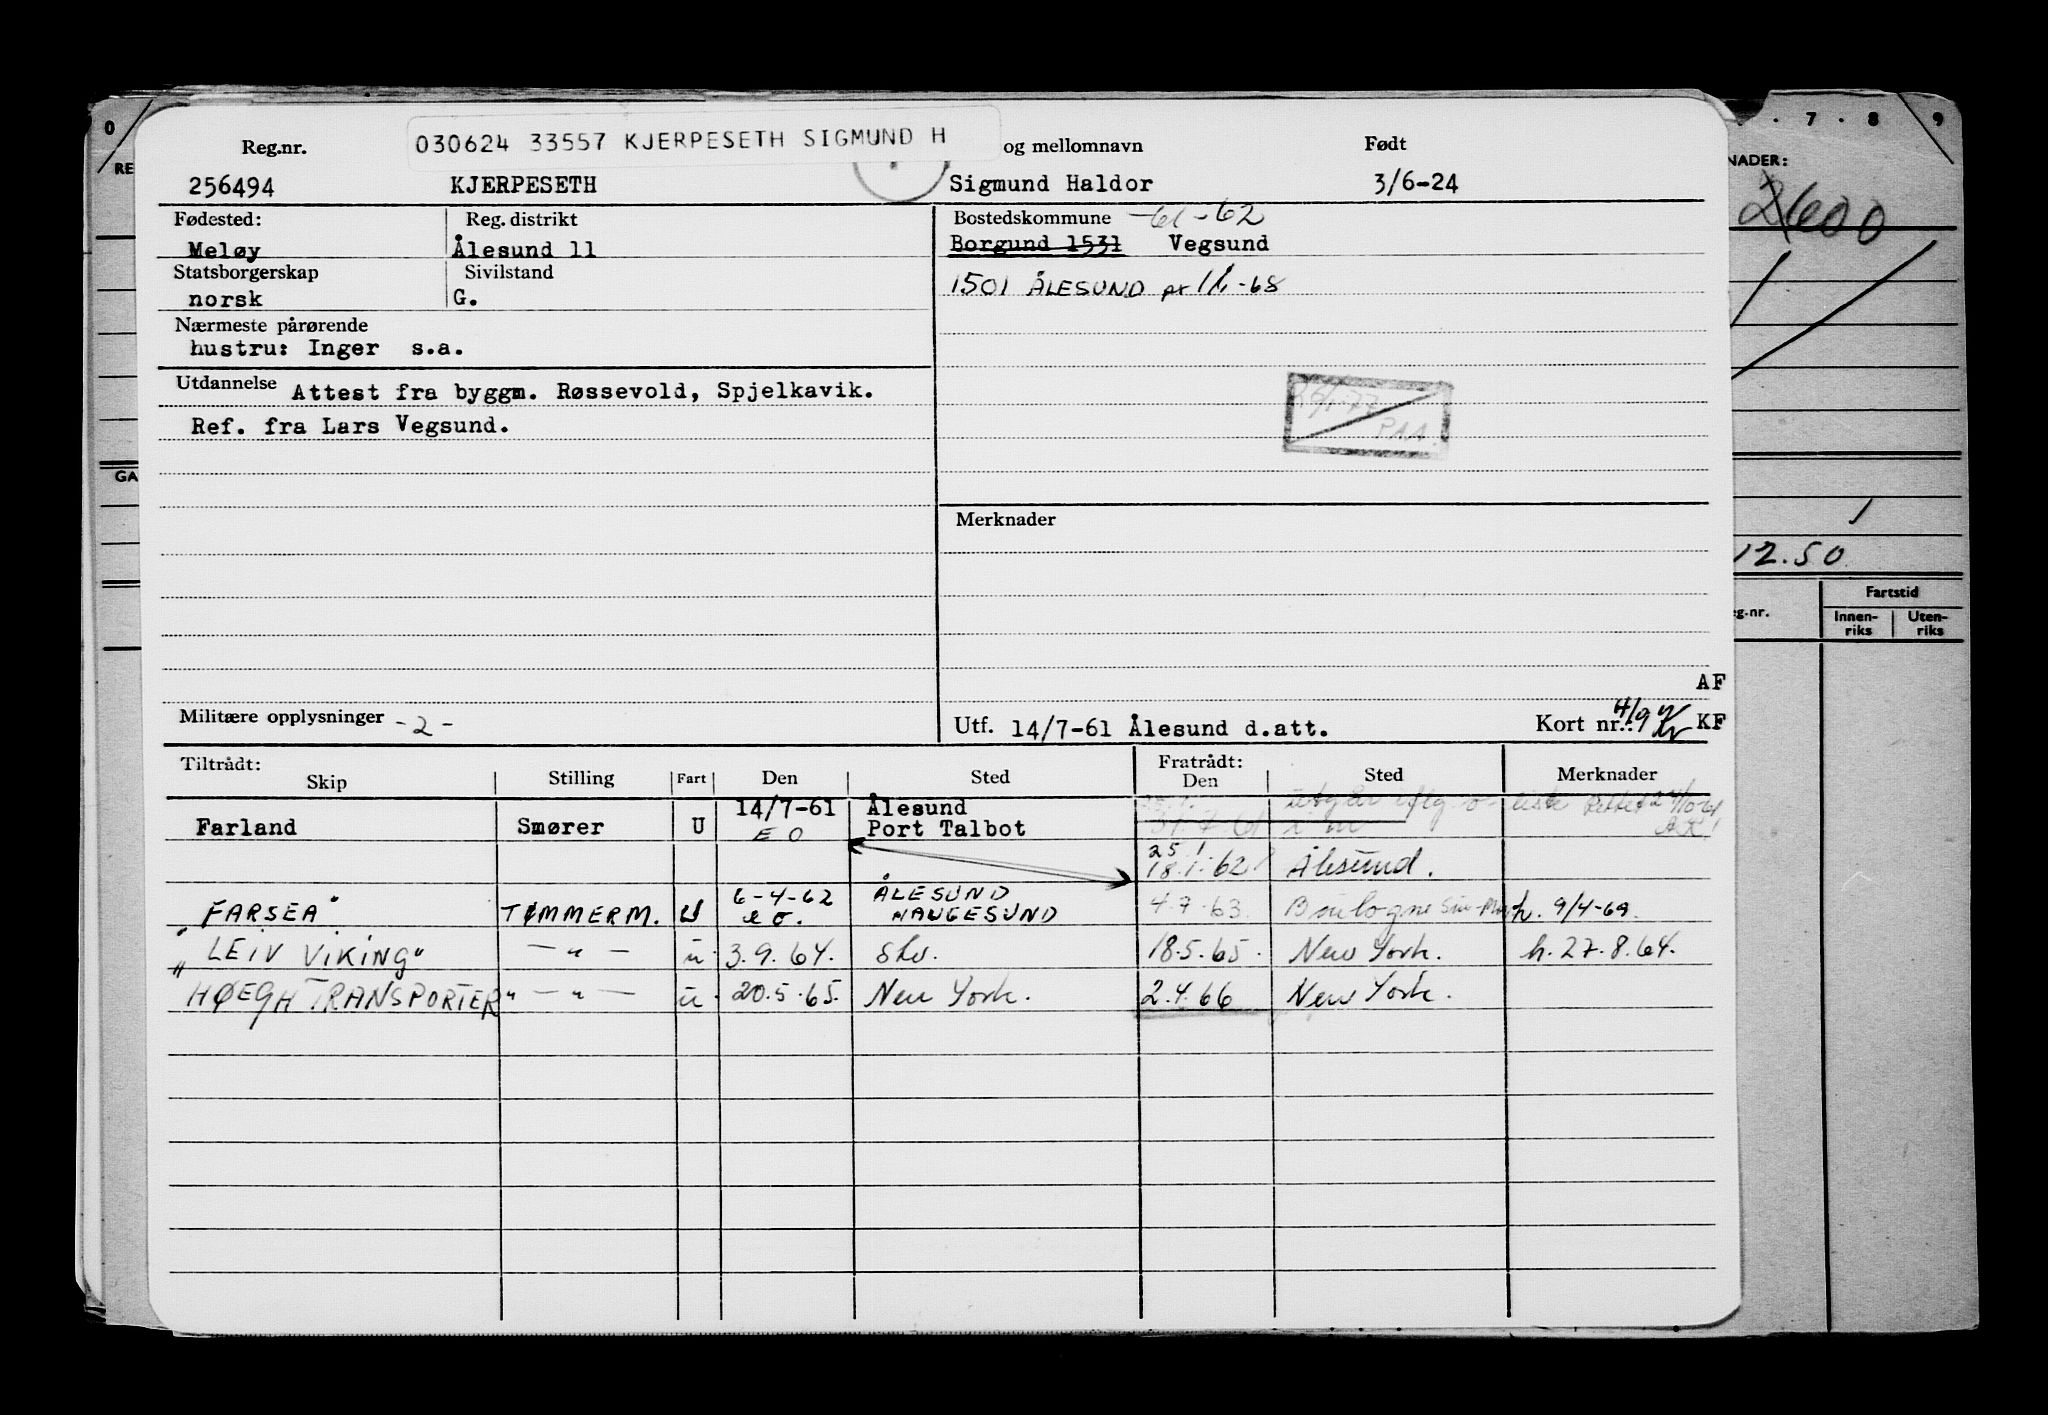 0 7 · 8 9
030624 33557 KJERPESETH SIGMUND H
Reg.nr. og mellomnavn Født
RE NADER:
256494 KJERPESETH Sigmund Haldor 3/6-24
2600
Fødested: Reg. distrikt Bostedskommune -61-62
Meløy Ålesund 11 Borgund 1531 Vegsund
Statsborgerskap Sivilstand
norsk G. 1501 ÅLESUND pr 1/1-68
Nærmeste pårørende
hustru: Inger s.a.
Utdannelse Attest fra byggm. Røssevold, Spjelkavik.
PAA.
Ref. fra Lars Vegsund.
GA
Merknader
1
12.50
Fartstid
eg.nr. Innen-riks Uten-riks
AF
Militære opplysninger -2- Utf. 14/7-61 Ålesund d.att. Kort nr.: 4/9 KF
Tiltrådt: Fratrådt:
Skip Stilling Fart Den Sted Den Sted Merknader
14/7-61 Ålesund
Farland Smører U EO Port Talbot 31.7.61
25.1
18.1.62 Ålesund.
6-4-62 ÅLESUND
"FARSEA" TØMMERM. U e o. HAUGESUND 4.7.63. Boulogne Sur-Mer h. 9/4-69.
"LEIV VIKING" — " — u. 3.9.64. Skv. 18.5.65. New York. h. 27.8.64.
"HØEGH TRANSPORTER" — " — u. 20.5.65. New York. 2.4.66 New York.